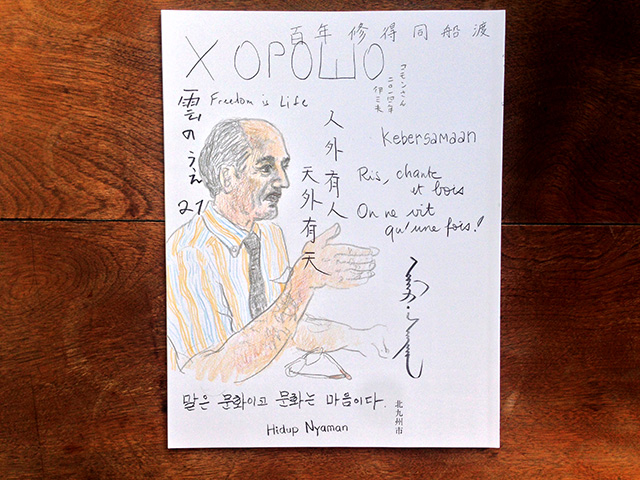 百年修得同船渡
ХОРОШО
コモンさん
二〇一四年
伊三夫
Freedom is Life
雲のうえ
21
人外有人
天外有天
Kebersamaan
Ris, chante
et bois
On ne vit
qu'une fois!
말은 문화이고 문화는 마음이다.
北九州市
Hidup Nyaman